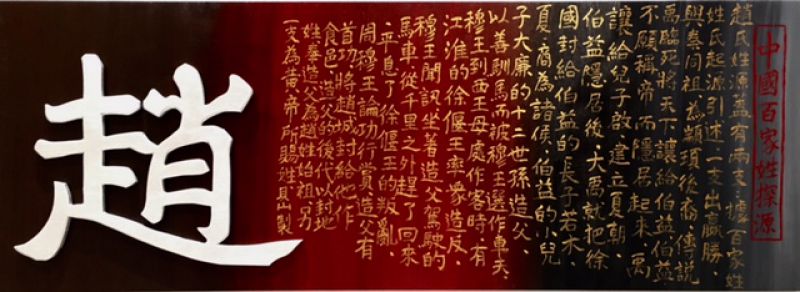 中國百家姓探源
趙氏姓源盖有兩支、據百家姓
姓氏起源引述一支出嬴勝、
與秦同祖為顓頊後裔、傳說
禹臨死將天下讓給伯益伯益
不願稱帝而隱居起來、禹
讓給兒子啟建立夏朝、
伯益隱居後、大禹就把徐
國封給伯益的長子若木
夏、商為諸侯、伯益的小兒
子大廉的十二世孫造父、
以善馴馬而被穆王選作車夫、
穆王到西王母處作客時、有
江淮的徐偃王率衆造反、
穆王聞訊坐著造父駕駛的
馬車從千里之外趕了回來
、平息了徐偃王的叛亂、
周穆王論功行賞造父有
首功、將趙城封給他作
食邑、造父的後代以封地
姓奉造父為趙姓始祖、另
一支為黃帝所賜姓 山製
趙